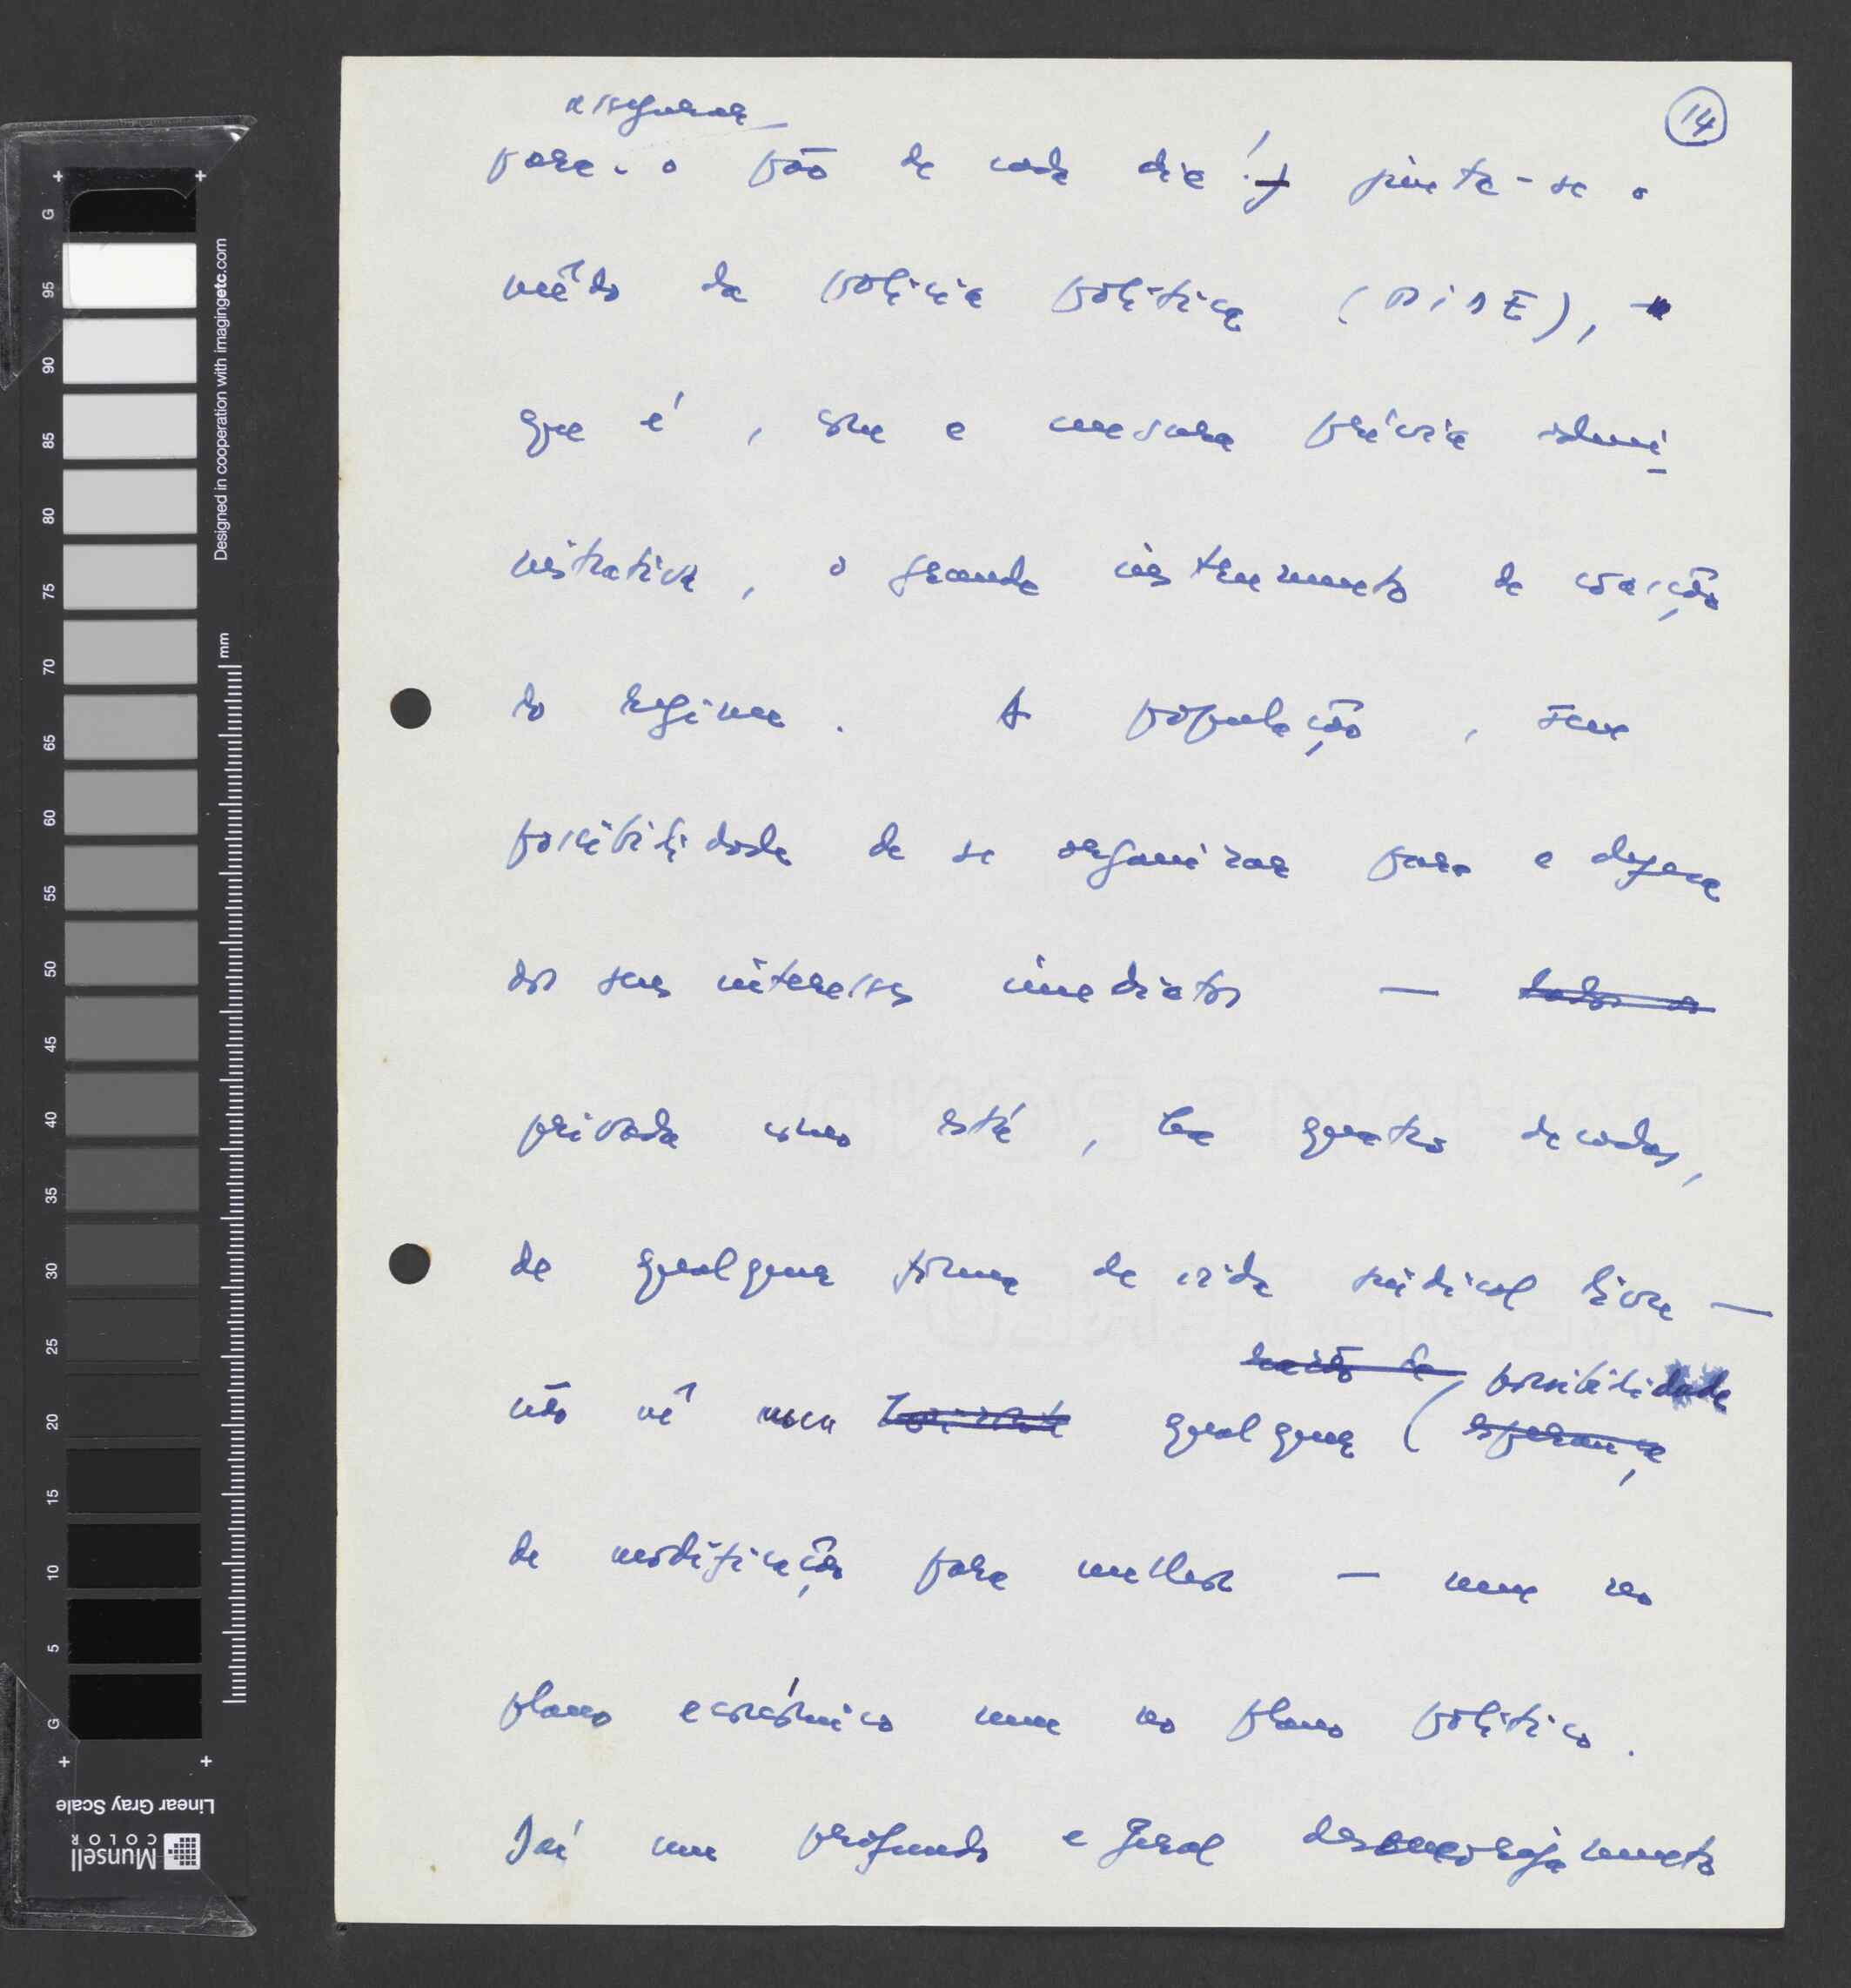 14
assegurar
para o pão de cada dia! junta-se o
mêdo da polícia política (PIDE),
que é, com a censura prévia admi
nistrativa, o grande instrumento de coacção
do regime. A população, sem
possibilidade de se organizar para a defesa
dos seus interesses imediatos — todos os
privada como está, há quatro decadas,
de qualquer forma de vida sindical livre —
razão de possibilidade
não vê nem qualquer ( esperança
de modificação para melhor — nem no
plano económico nem no plano político.
Daí um profundo e geral desencorajamento
Designed in cooperation with imagingetc.com
mm
G 95 90 85 80 75 70 65 60 55 50 45 40 35 30 25 20 15 10 5 G
Linear Gray Scale
Munsell
COLOR